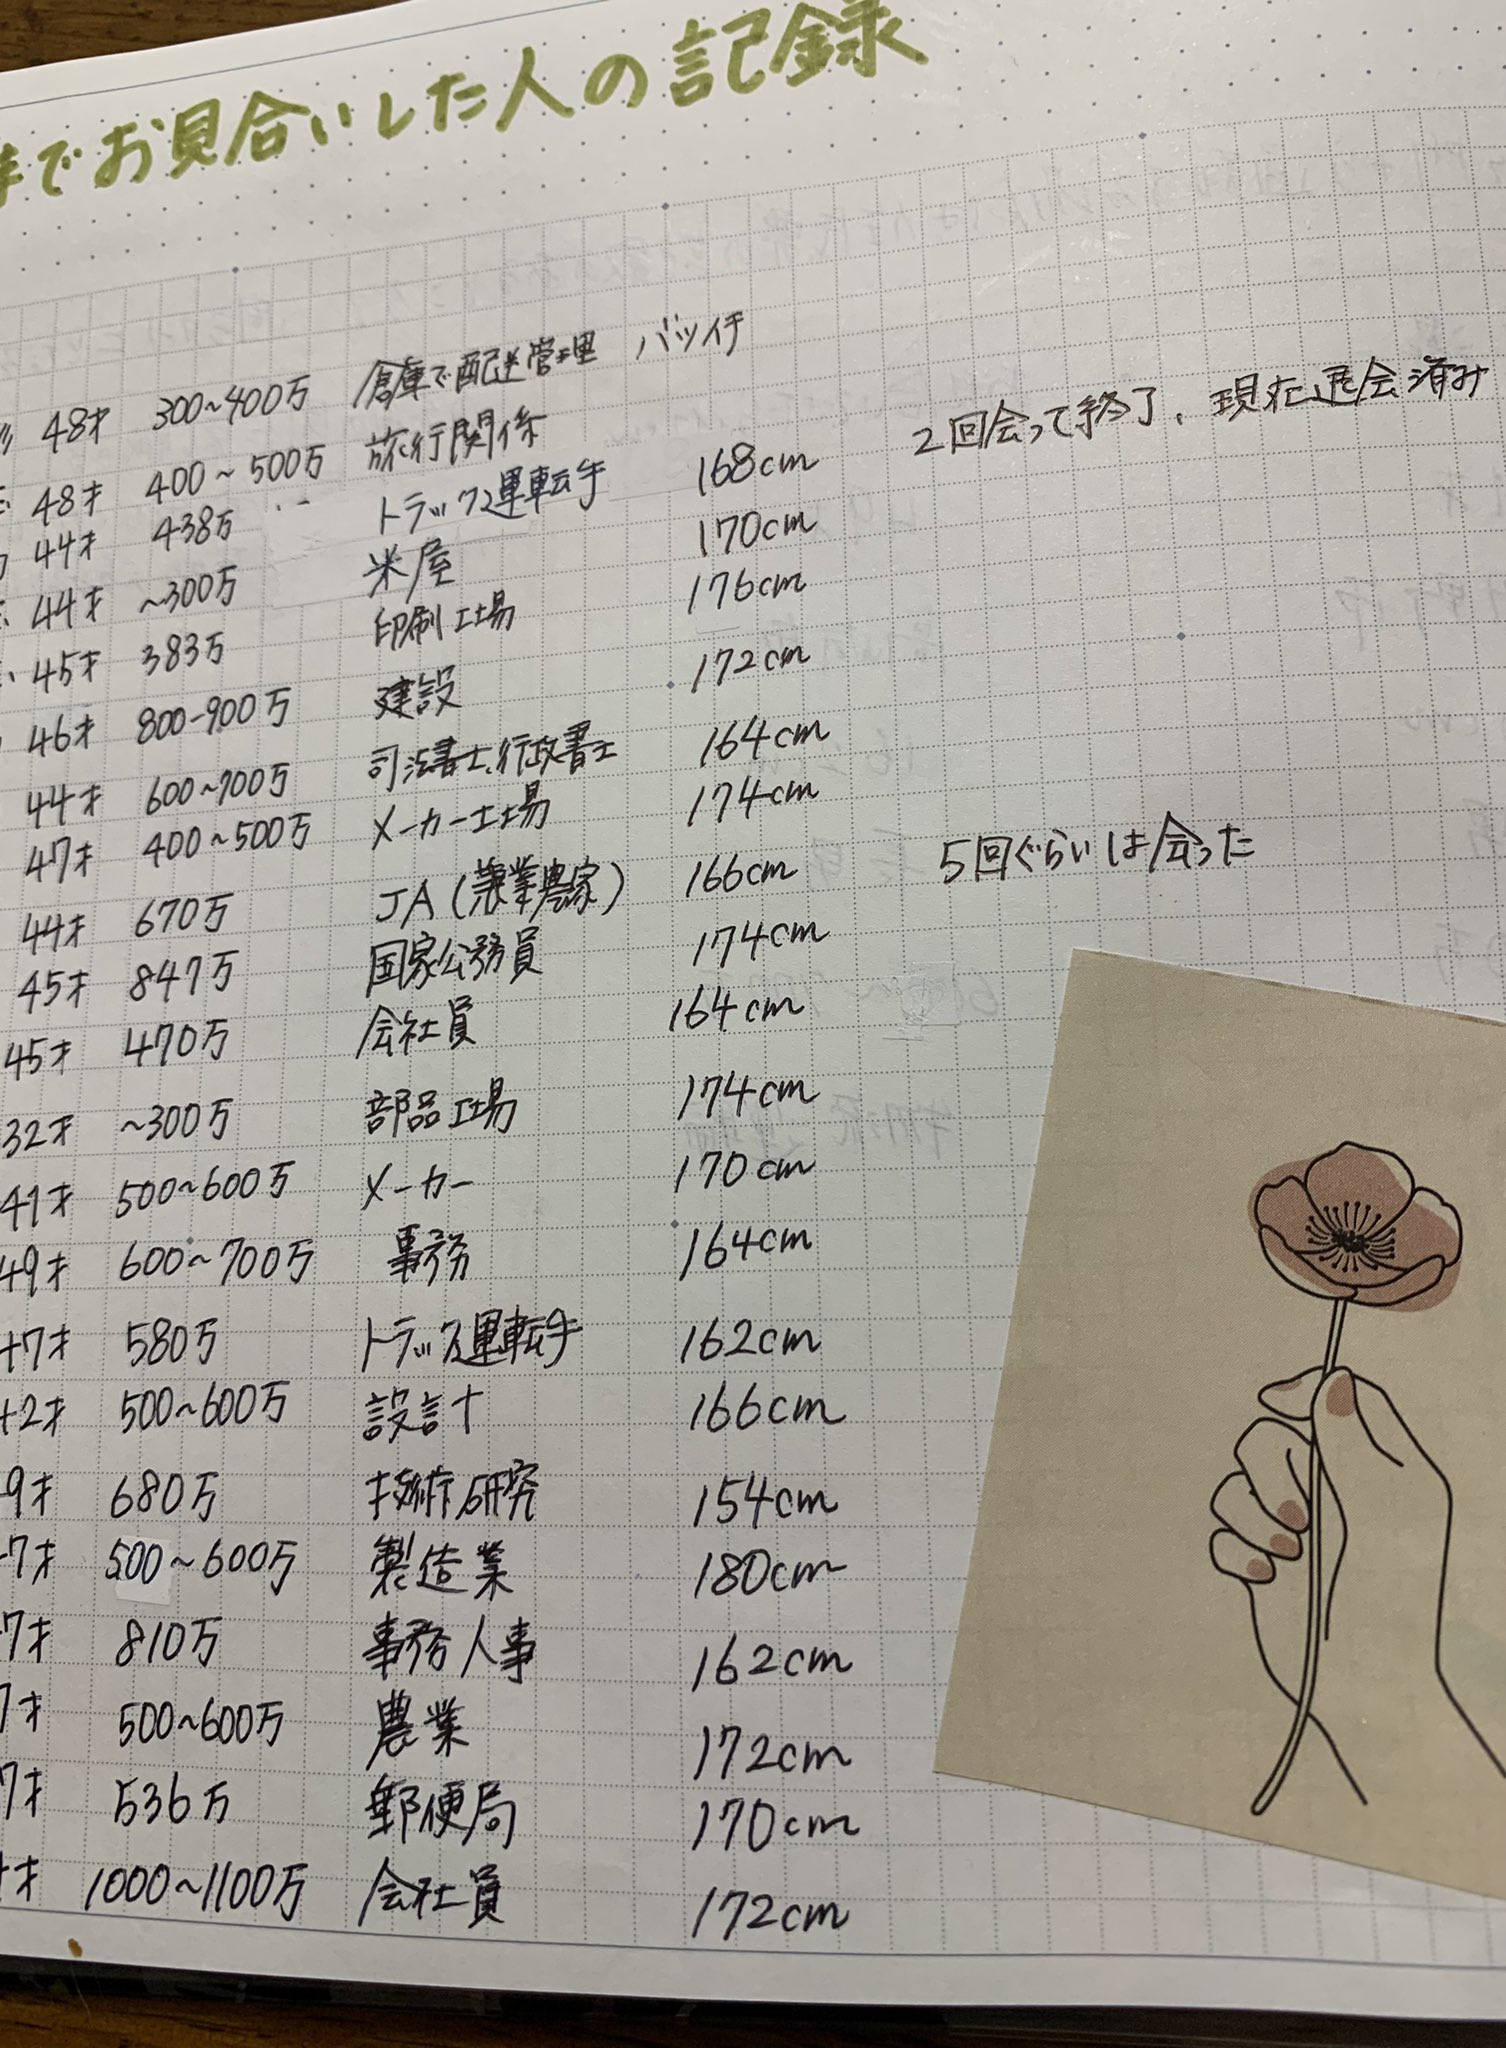 までお見合いした人の記録
48才 300~400万 倉庫で配送管理 バツイチ
48才 400~500万 旅行関係
44才 438万 トラック運転手 168cm 2回会って終了、現在退会済み
44才 ~300万 米屋 170cm
45才 383万 印刷工場 176cm
46才 800-900万 建設 172cm
44才 600~700万 司法書士、行政書士 164cm
47才 400~500万 メーカー工場 174cm
44才 670万 JA(兼業農家) 166cm 5回ぐらいは会った
45才 847万 国家公務員 174cm
45才 470万 会社員 164cm
32才 ~300万 部品工場 174cm
41才 500~600万 メーカー 170cm
49才 600~700万 事務 164cm
7才 580万 トラック運転手 162cm
2才 500~600万 設計 166cm
9才 680万 技術研究 154cm
7才 500~600万 製造業 180cm
7才 810万 事務人事 162cm
7才 500~600万 農業 172cm
7才 536万 郵便局 170cm
才 1000~1100万 会社員 172cm